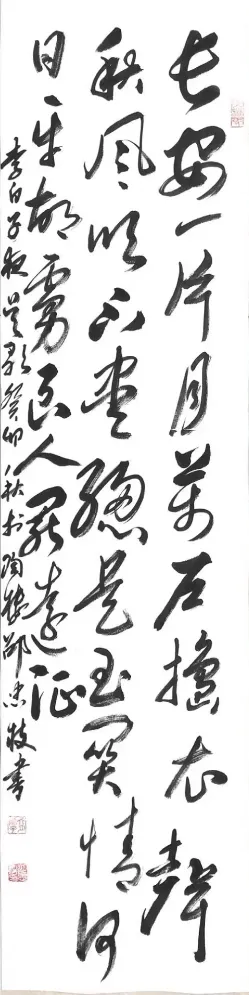 長安一片月萬户擣衣聲
秋風吹不盡總是玉關情何
日平胡虜良人罷遠征
李白子夜吳歌癸卯秋於書